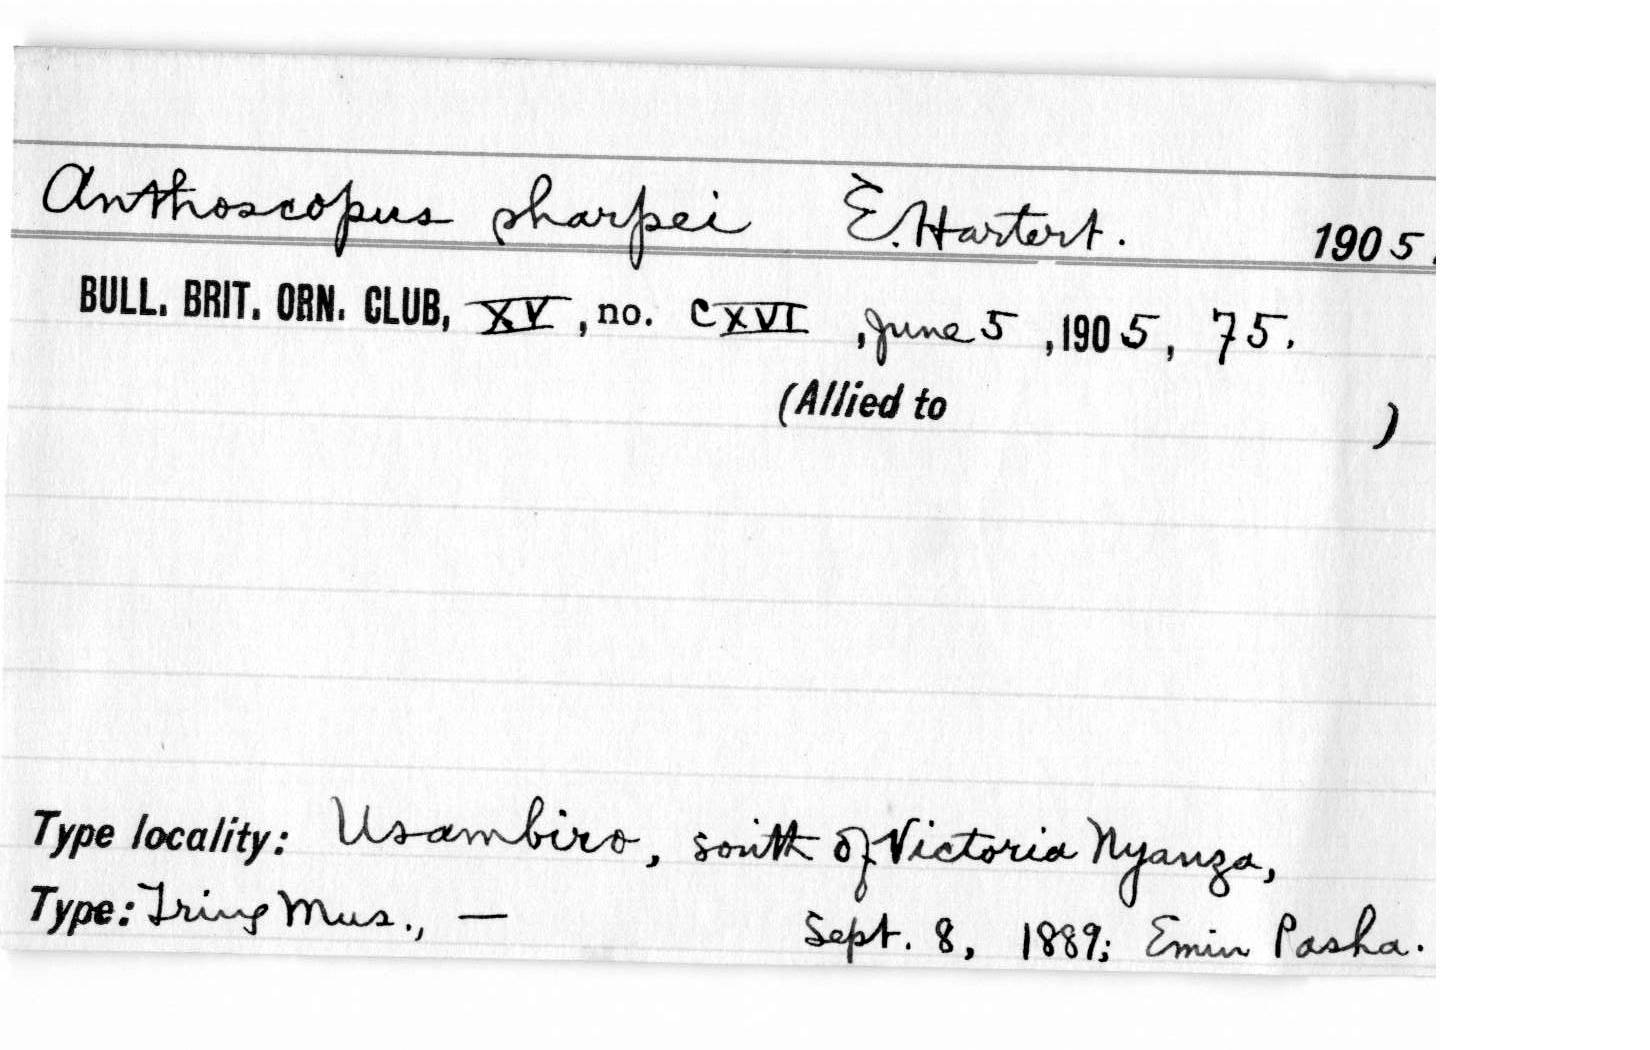 Anthoscopus sharpei E. Hartert. 1905.
BULL. BRIT. ORN. CLUB, XV, no. CXVI, June 5, 1905, 75.
(Allied to )
Type locality: Usambiro, south of Victoria Nyanza,
Type: Tring Mus., — Sept. 8, 1889; Emin Pasha.